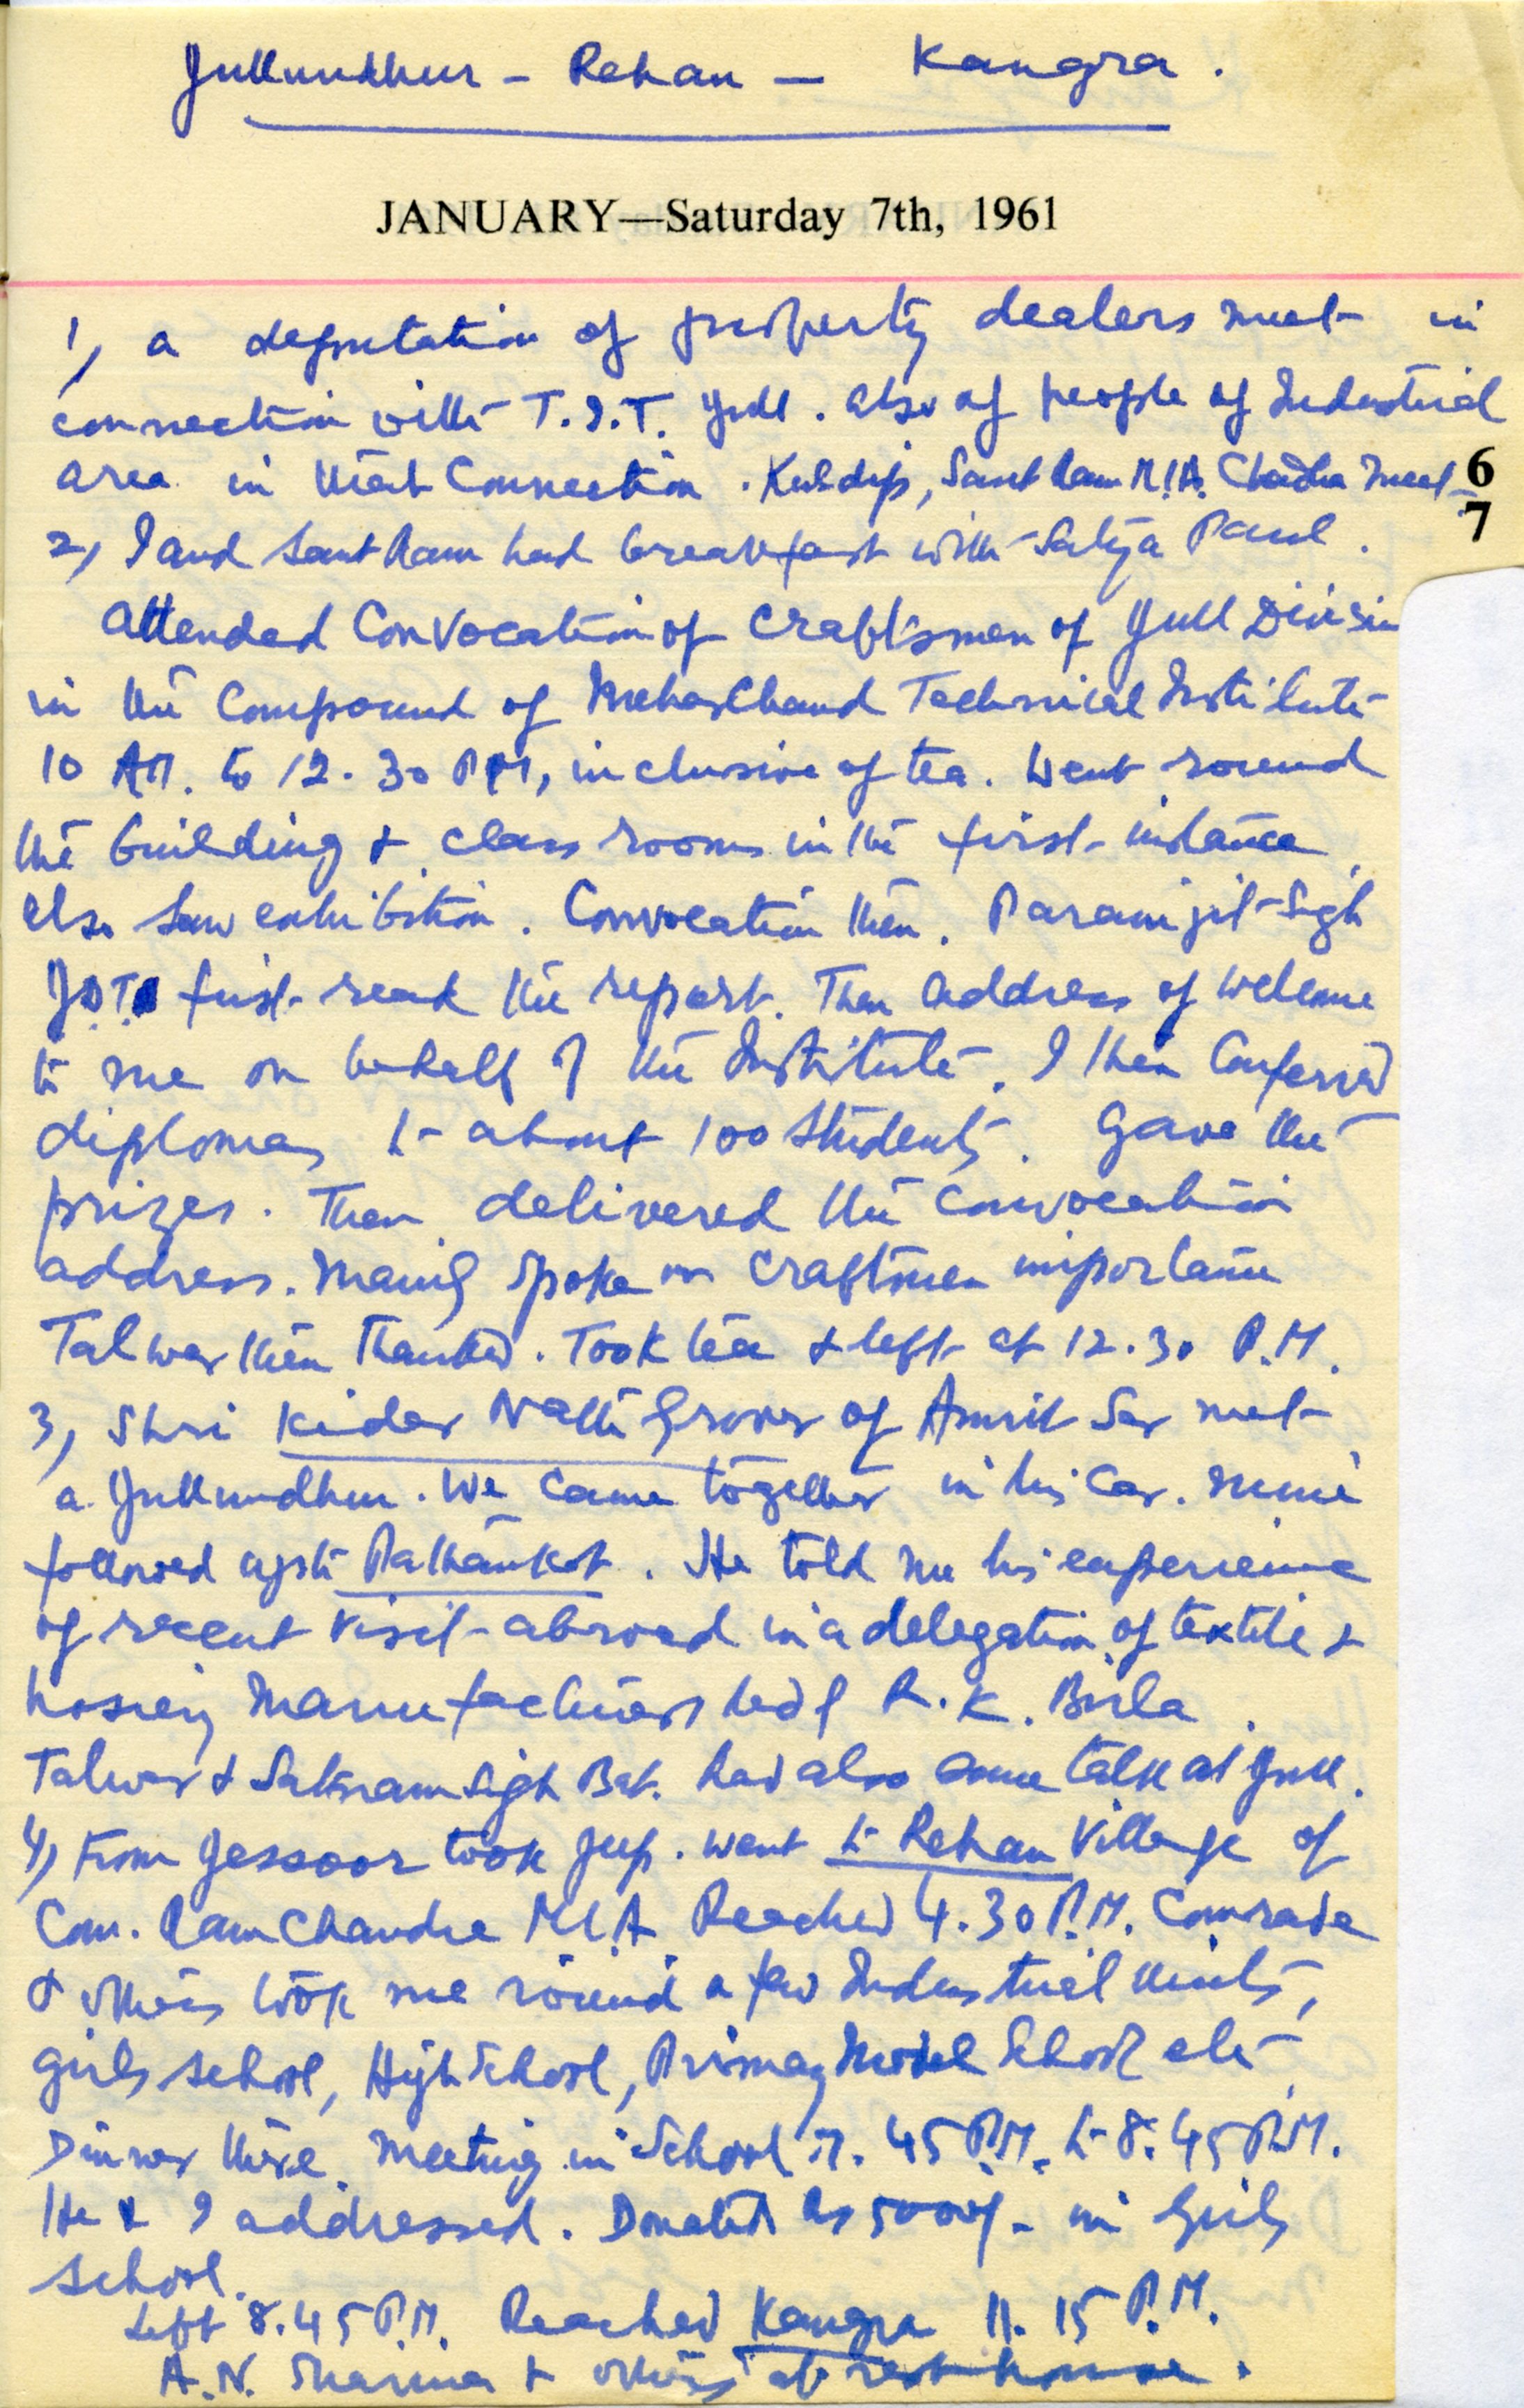 Jullundhur - Rehan - Kangra.
JANUARY—Saturday 7th, 1961
1, a deputation of property dealers meet in
connection with T.I.T. Jull. also of people of Industrial
area in that Connection. Kuldip, Sant Ram M.L.A. Chadha meet
6
7
2, I and Sant Ram had breakfast with Satya Paul.
Attended Convocation of Craftsmen of Jull Division
in the Compound of MeharChand Technical Institute
10 AM. to 12.30 PM, inclusive of tea. Went round
the building & class rooms in the first instance,
also saw exhibition. Convocation then. Paramjit Sigh
first read the report. Then address of welcome
to me on behalf of the Institute. I then Conferred
diplomas to about 100 students. Gave the
prizes. Then delivered the Convocation
address. Mainly spoke on Craftsmen importance
Talwar then thanked. Took tea & left at 12.30 P.M.
3, Shri Kidar Nath Grover of Amrit Sar met
a Jullundhur. We came together in his Car. Mine
followed upto Pathankot. He told me his experience
of recent visit abroad in a delegation of textile &
hosiery Manufacturers led by R.K. Birla.
Talwar & Satnam Sigh Bat. had also some talk at Jull.
4, From Jessoor took Jeep. went to Rehan Village of
Com. Ram Chandra MLA Reached 4.30 P.M. Comrade
& others took me round a few Industrial Units,
girls school, High School, Primary Model School etc.
Dinner there. Meeting in School 7.45 P.M. to 8.45 P.M.
He & I addressed. Donated Rs 5000/- in Girls
School.
Left 8.45 P.M. Reached Kangra 11.15 P.M.
A.N. Sharma & others at rest house.